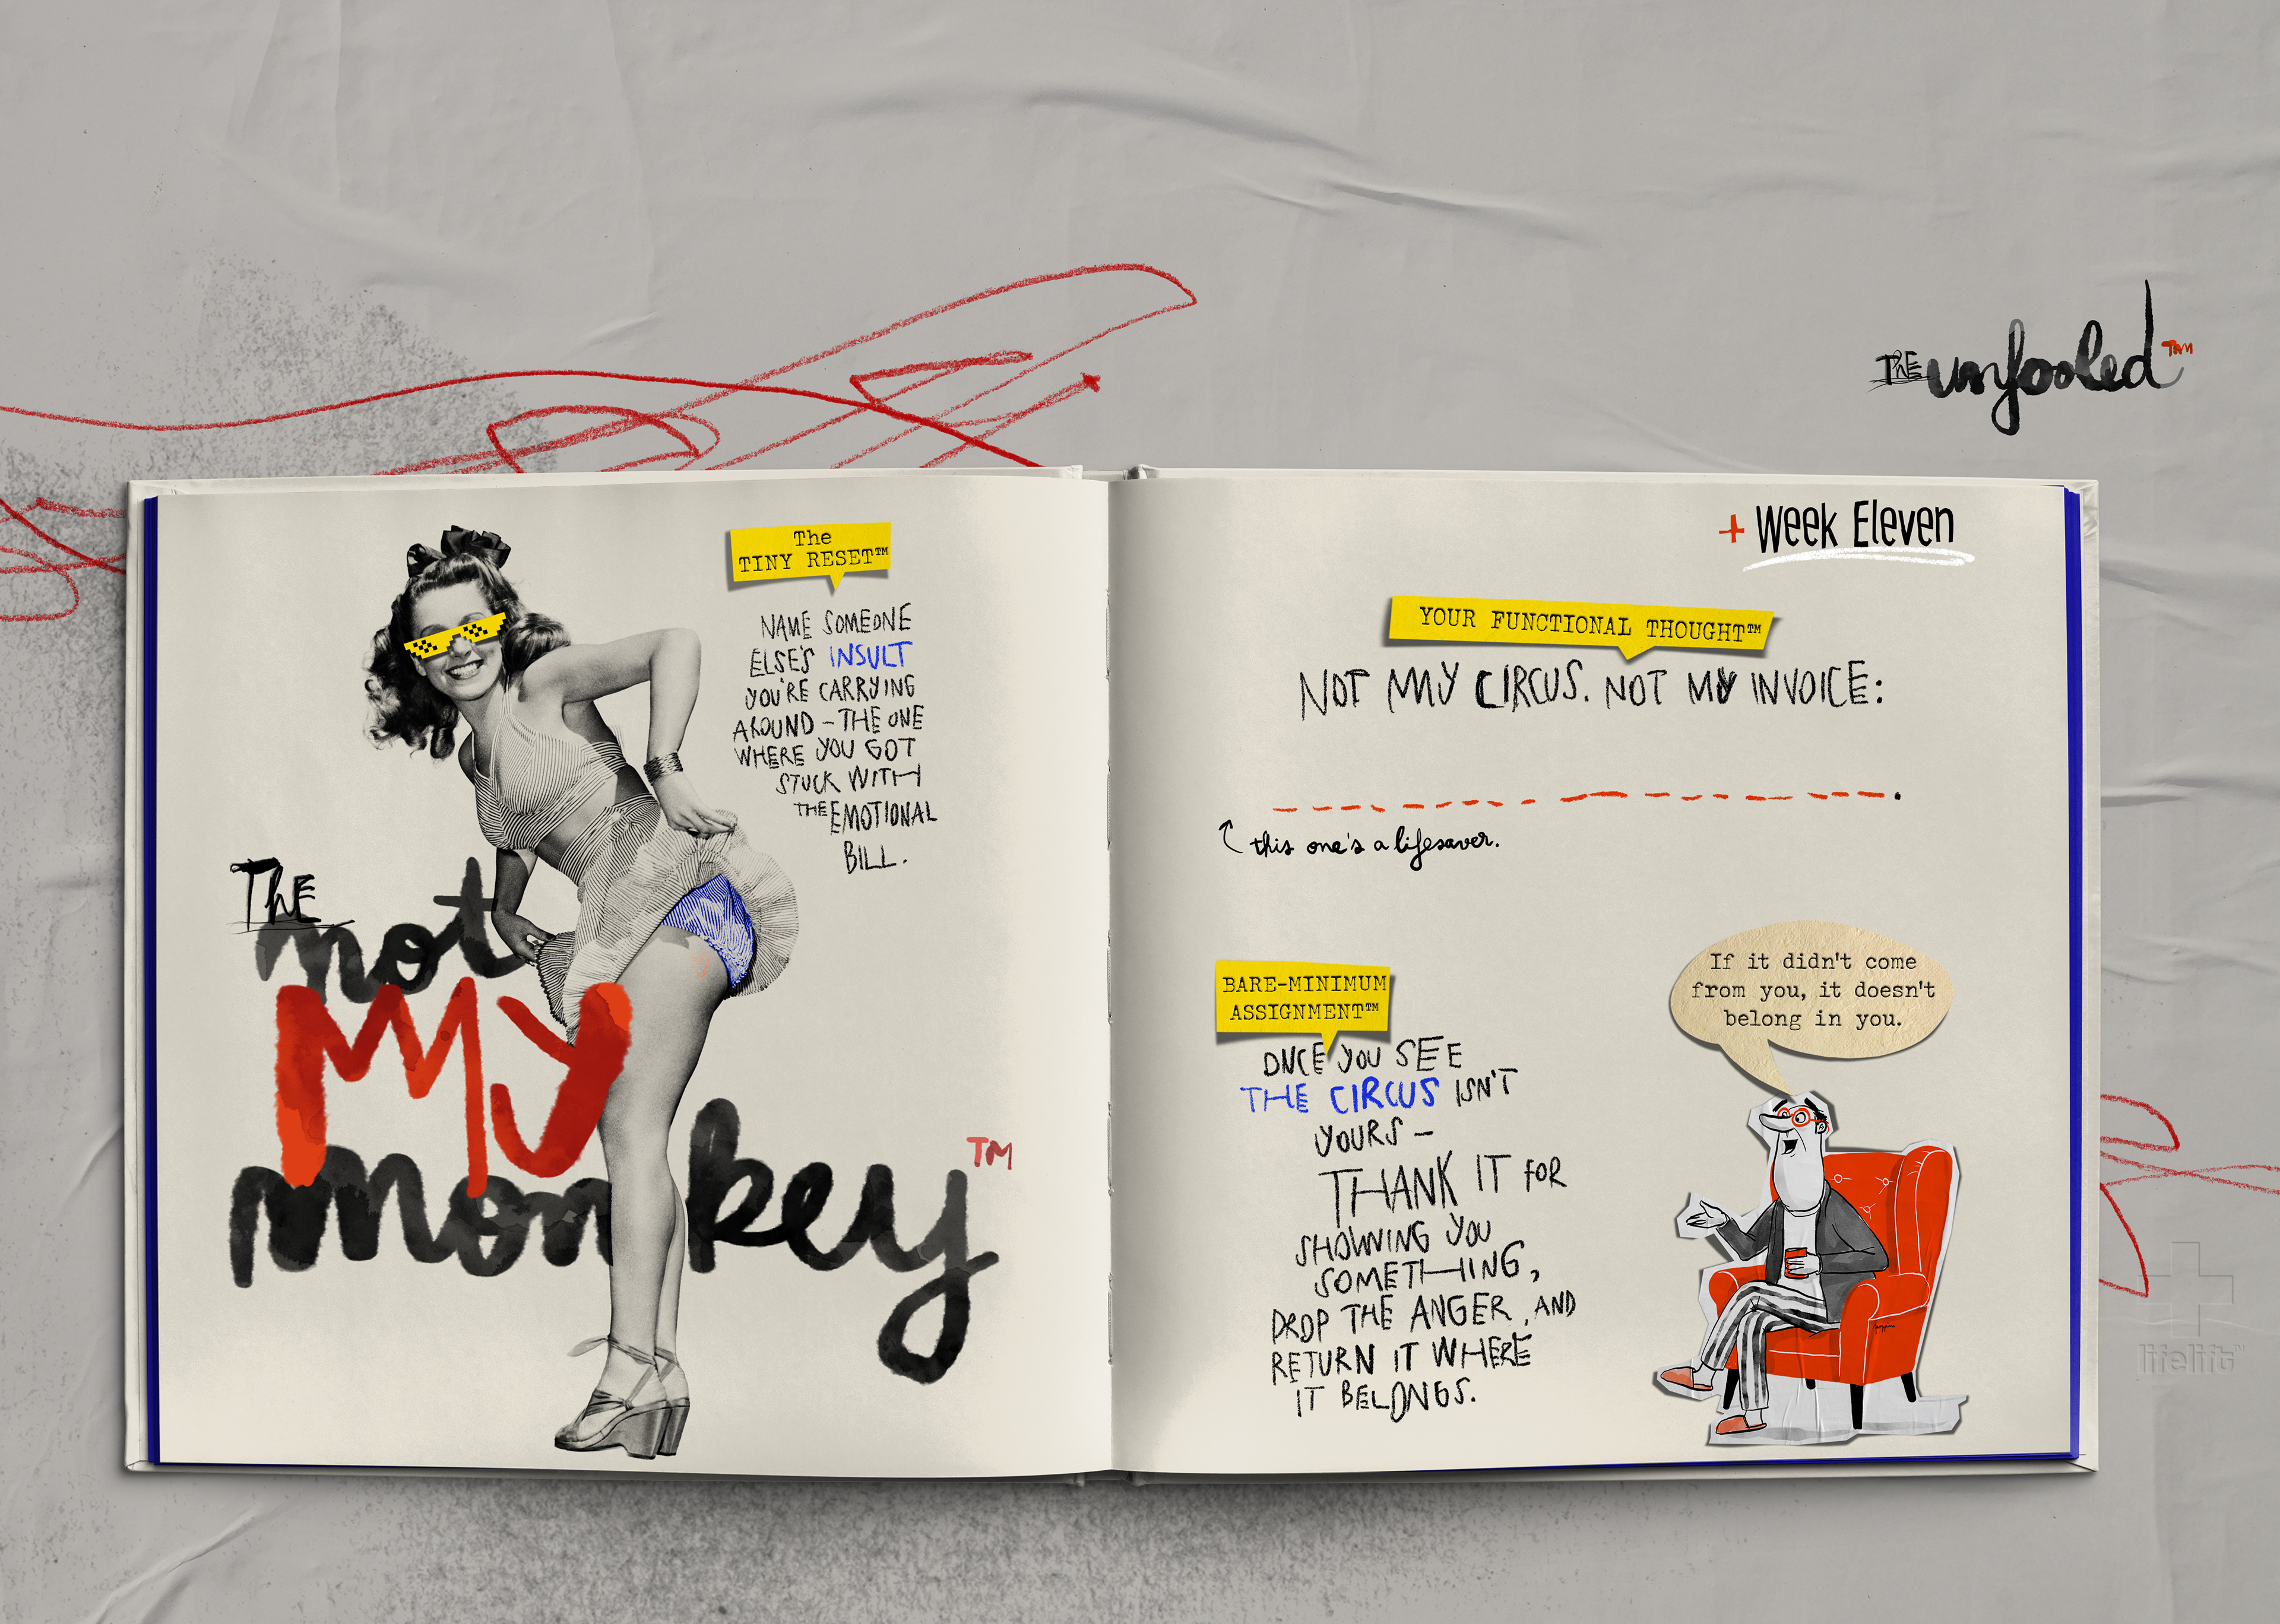 THE unfooled TM
The
TINY RESET™
NAME SOMEONE
ELSE'S INSULT
YOU'RE CARRYING
AROUND – THE ONE
WHERE YOU GOT
STUCK WITH
THE EMOTIONAL
BILL.
THE
not
MY
monkey TM
+ Week Eleven
YOUR FUNCTIONAL THOUGHT™
NOT MY CIRCUS. NOT MY INVOICE:
this one's a lifesaver.
BARE-MINIMUM
ASSIGNMENT™
ONCE YOU SEE
THE CIRCUS ISN'T
YOURS –
THANK IT FOR
SHOWING YOU
SOMETHING,
DROP THE ANGER, AND
RETURN IT WHERE
IT BELONGS.
If it didn't come
from you, it doesn't
belong in you.
lifelift™